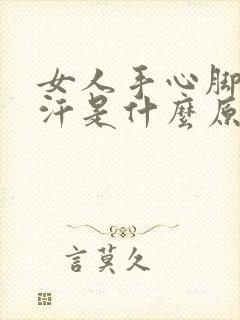 女人手心脚
汗是什麼原
言莫久